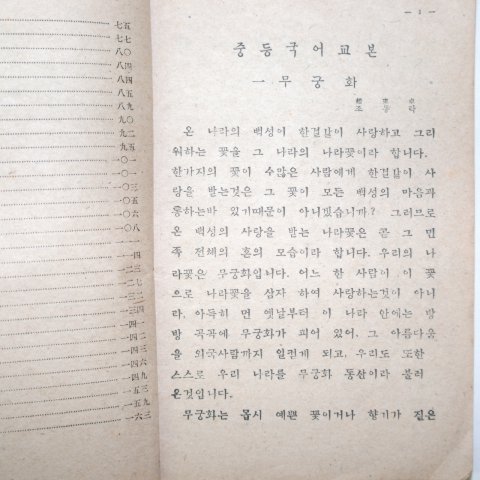 七五
七七
八〇
八四
八四
八五
八九
九〇
九二
九五
一〇一
一〇三
一〇五
一〇六
一〇八
一一四
一二三
一二七
一三二
一三四
一四一
一四二
一四三
一四六
一四九
一五三
一五九
一六三
— 1 —
중등국어교본
一 무궁화
趙東卓
조동탁
온 나라의 백성이 한결같이 사랑하고 그리
워하는 꽃을 그 나라의 나라꽃이라 합니다.
한가지의 꽃이 수많은 사람에게 한결같이 사
랑을 받는것은 그 꽃이 모든 백성의 마음과
통하는바 있기때문이 아니겠습니까? 그러므로
온 백성의 사랑을 받는 나라꽃은 곧 그 민
족 전체의 혼의 모습이라 합니다. 우리의 나
라꽃은 무궁화입니다. 어느 한 사람이 이 꽃
으로 나라꽃을 삼자 하여 사랑하는것이 아니
라, 아득히 먼 옛날부터 이 나라 안에는 방
방 곡곡에 무궁화가 피어 있어, 그 아름다움
을 외국사람까지 일컫게 되고, 우리도 또한
스스로 우리 나라를 무궁화 동산이라 불러
온것입니다.
무궁화는 몹시 예쁜 꽃이거나 향기가 짙은